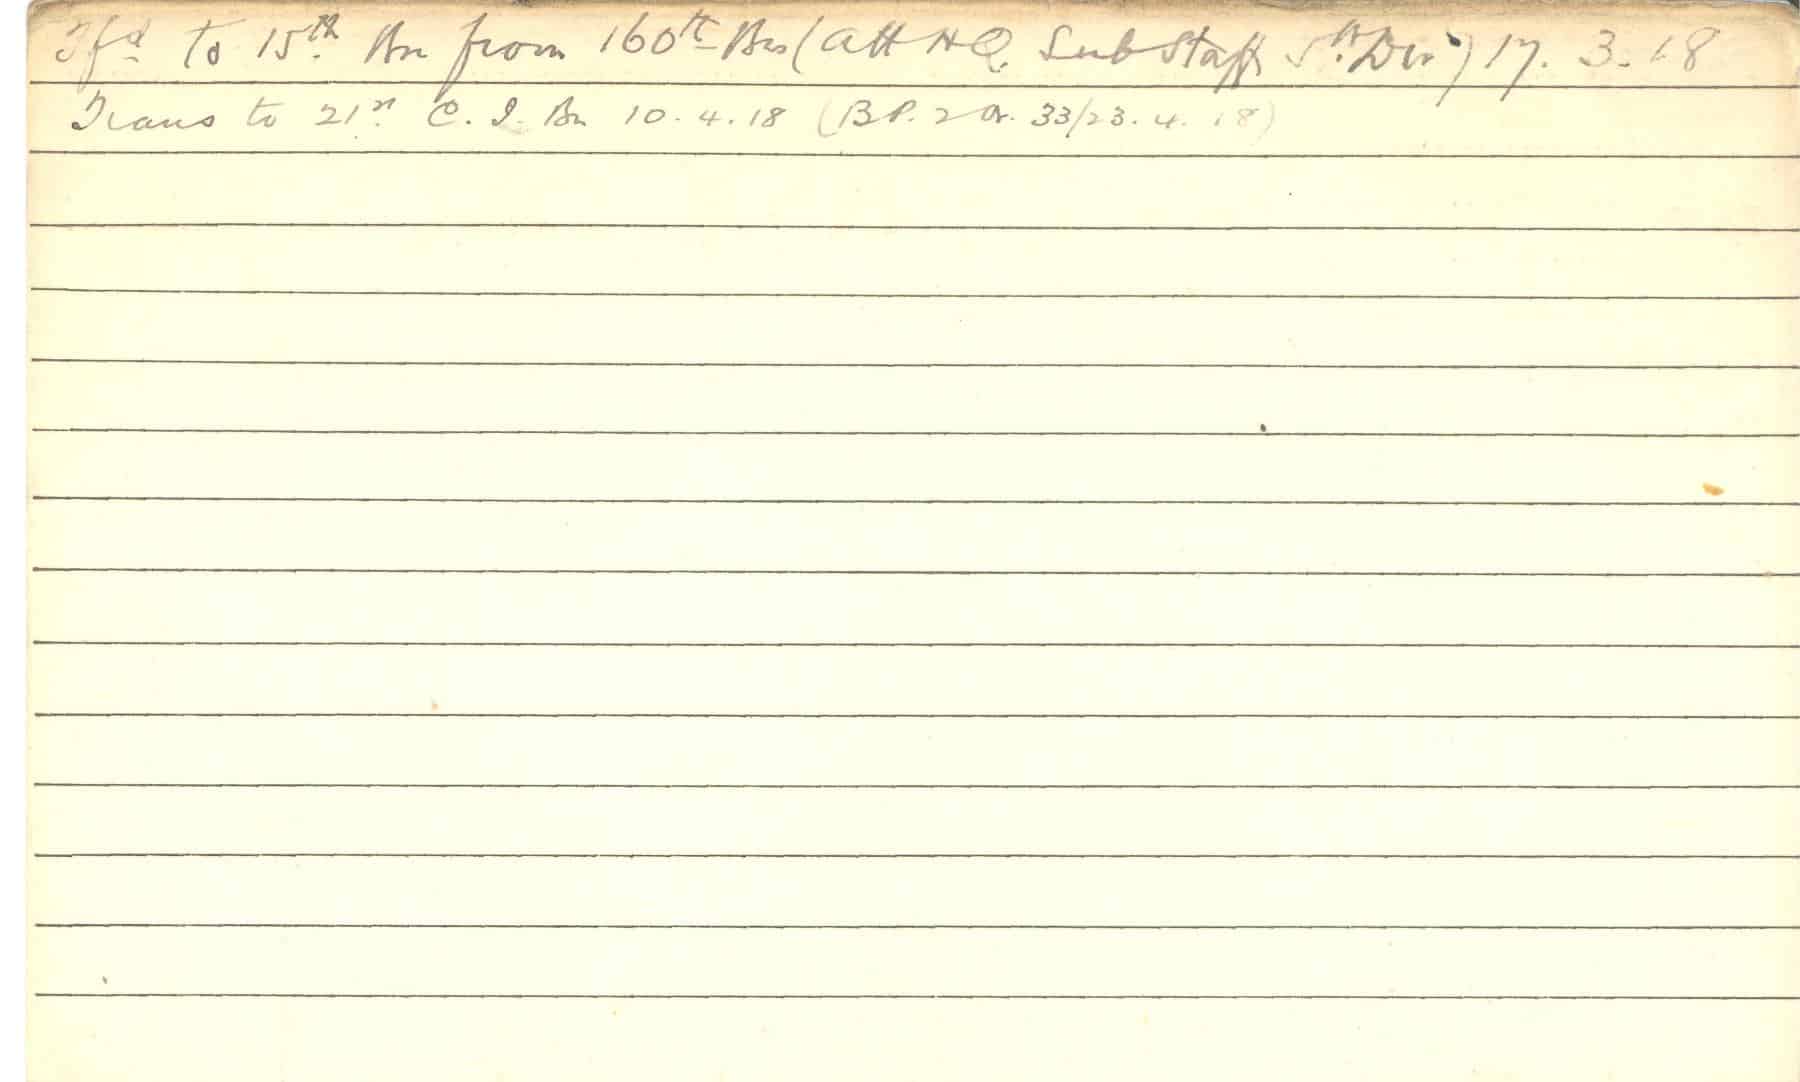 Tfd to 15th Bn from 160th Bn (att HQ Sub Staff 5th Div.) 17. 3. 18
Trans to 21st C. I. Bn 10. 4. 18 (BP. 2 Or. 33/23. 4. 18)